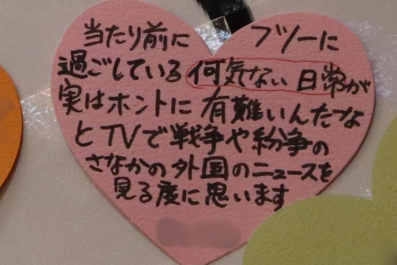 当たり前に フツーに
過ごしている何気ない日常が
実はホントに有難いんだな
とTVで戦争や紛争の
さなかの外国のニュースを
見る度に思います